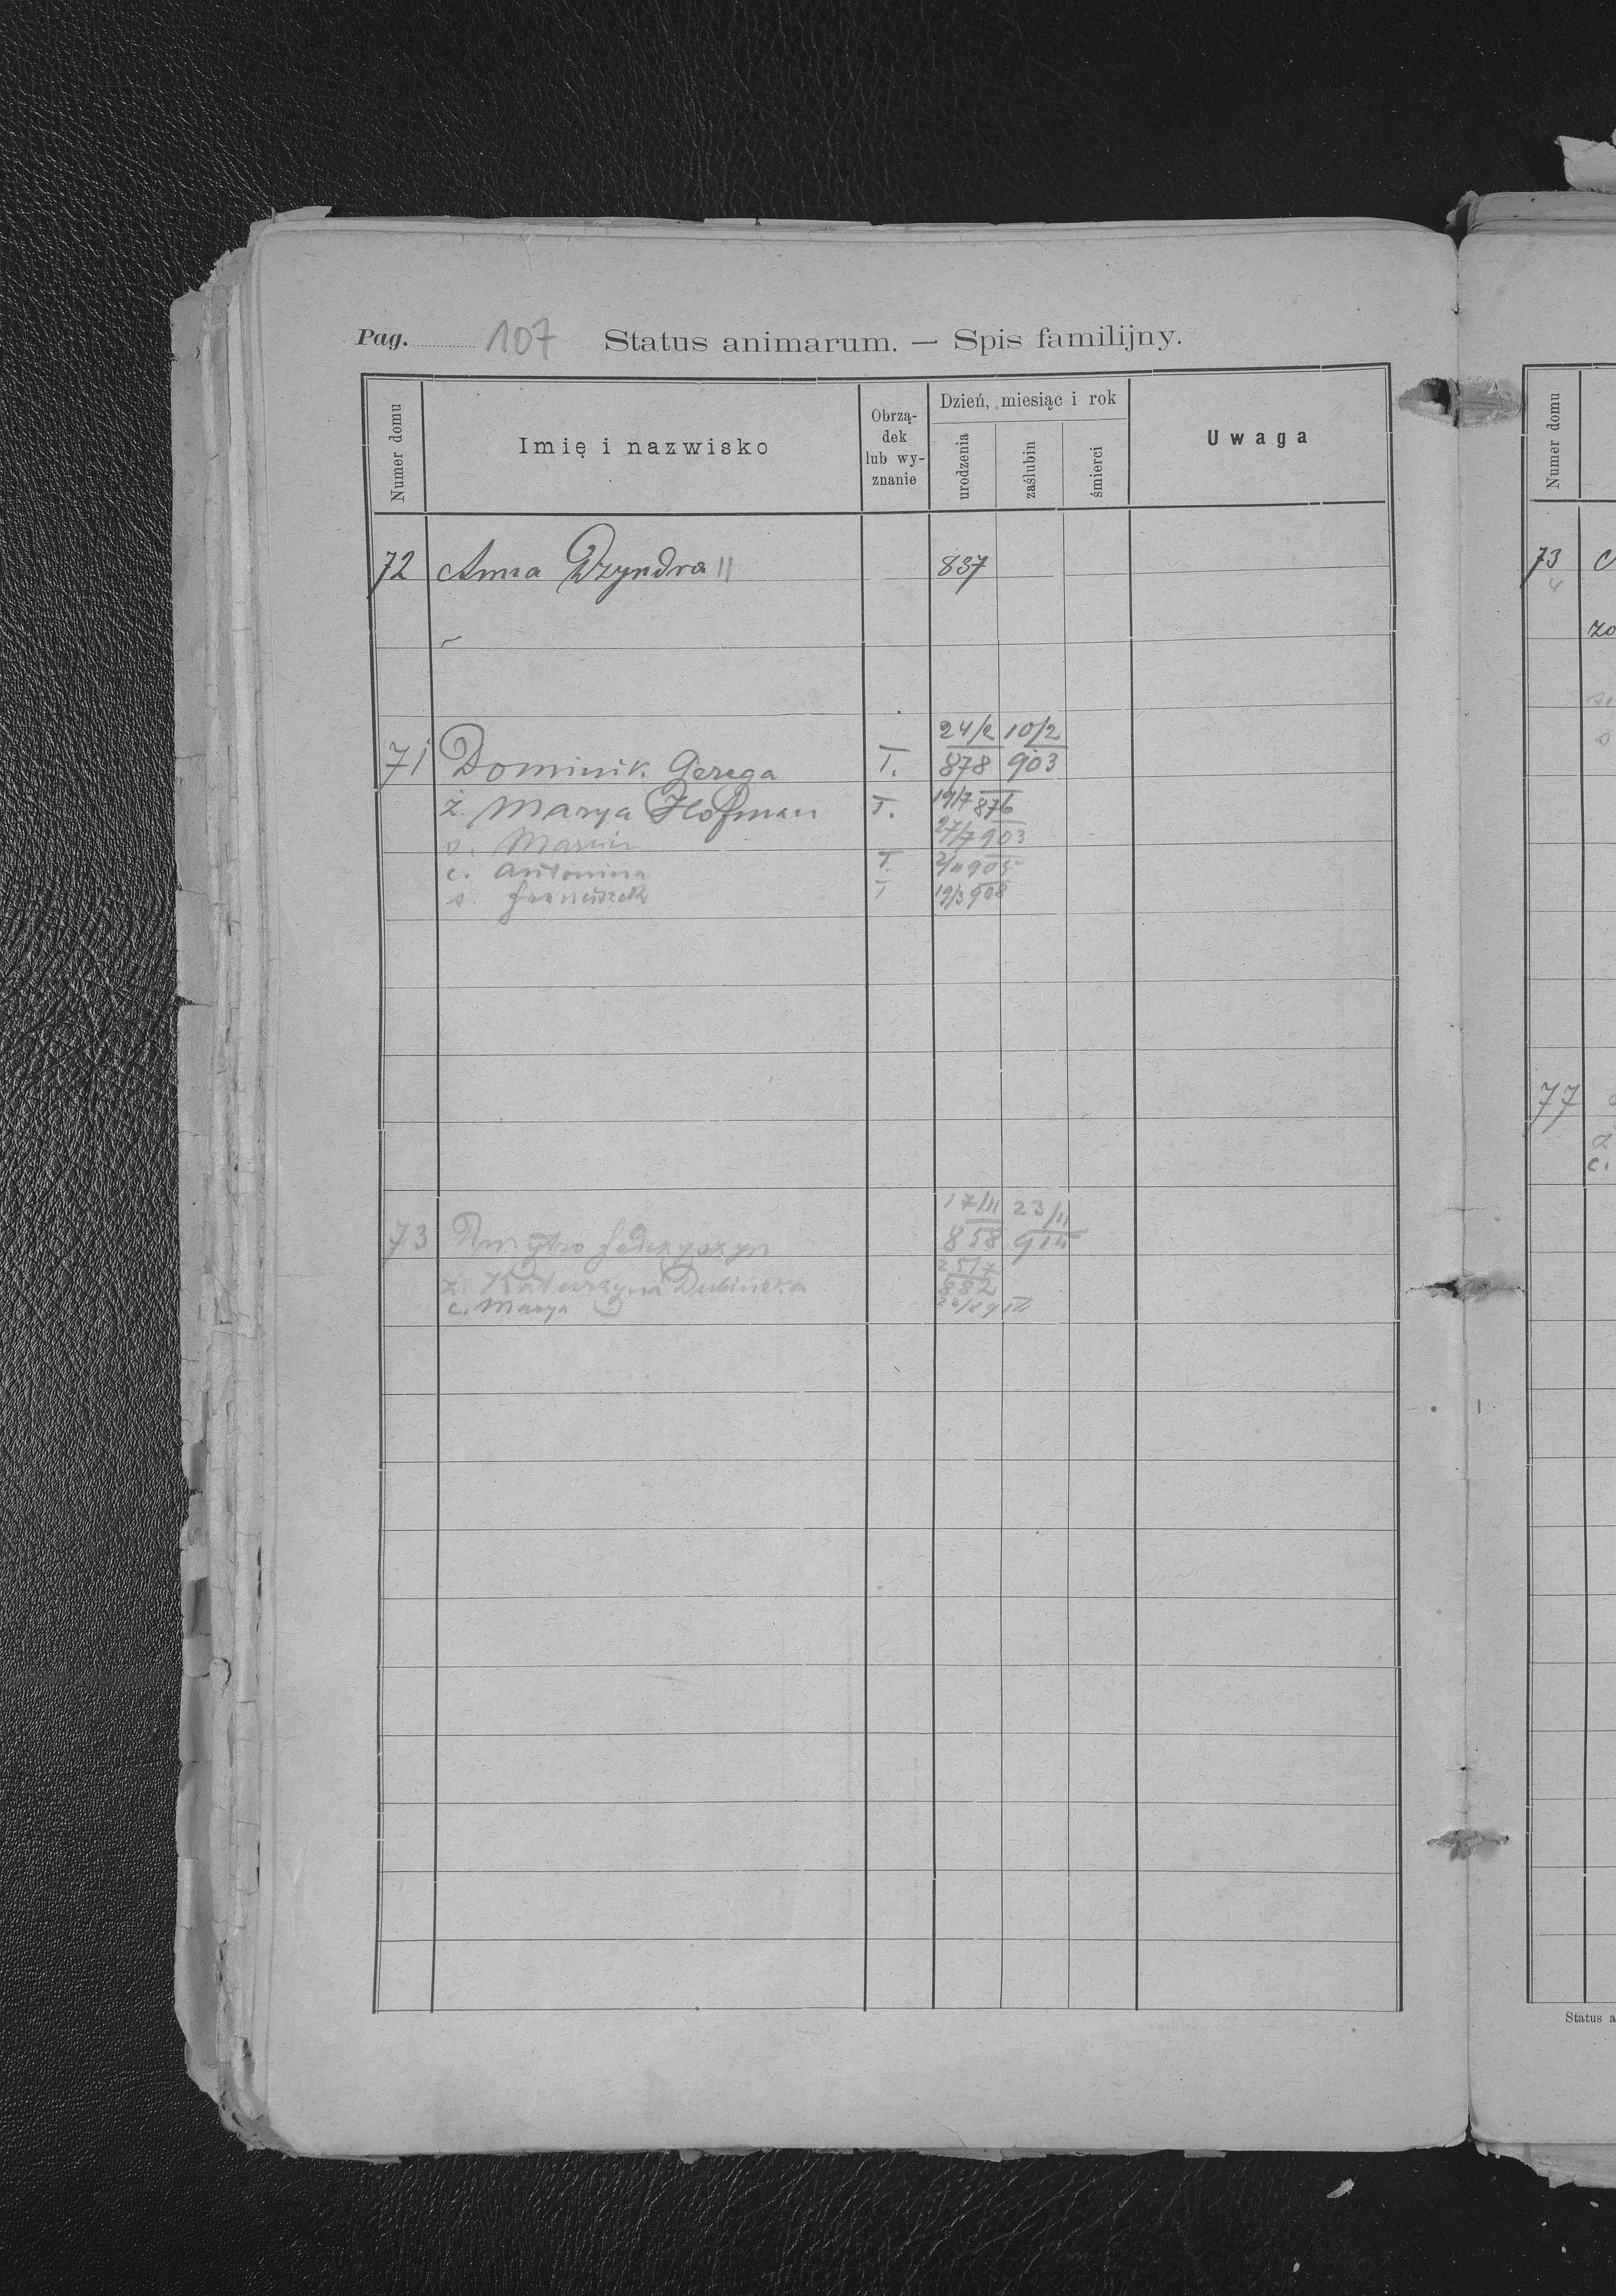 Pag. 107 Status animarum. — Spis familijny.
Numer domu
Imię i nazwisko
Obrzą-
dek
lub wy-
znanie
Dzień, miesiąc i rok
urodzenia
zaślubin
śmierci
Uwaga
72 Anna Dzyndra 837
24/2 10/2
71 Dominik Gerega T. 878 903
ż. Marya Hofman T. 19/7 876
s. Marcin 27/7 903
c. Antonina T. 2/11 905
s. Franciszek T 19/3 908
17/11 23/11
73 Dmytro Fedczyszyn 858 914
25/7
ż. Katarzyna Dubińska 882
c. Marya
Numer domu
73
4
zo
77
ż
c.
Status a